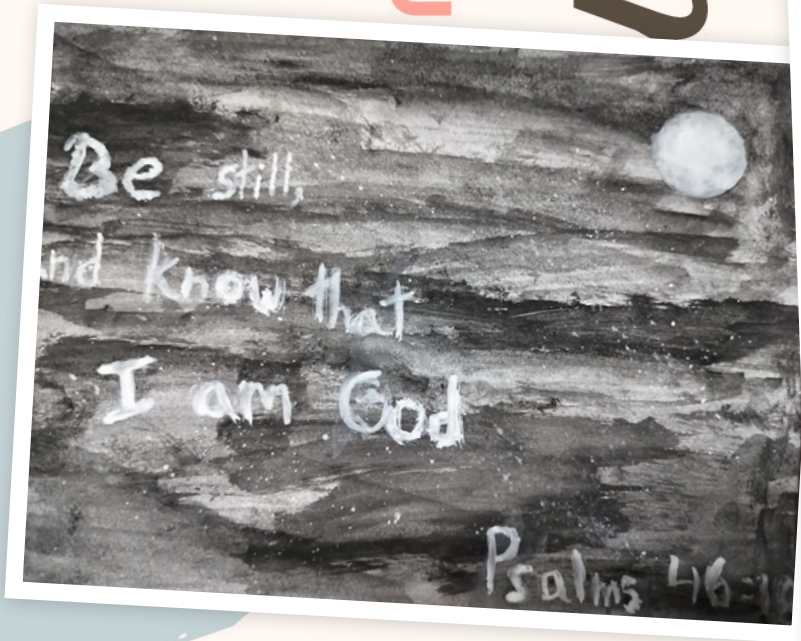 Be still,
nd know that
I am God
Psalms 46:10